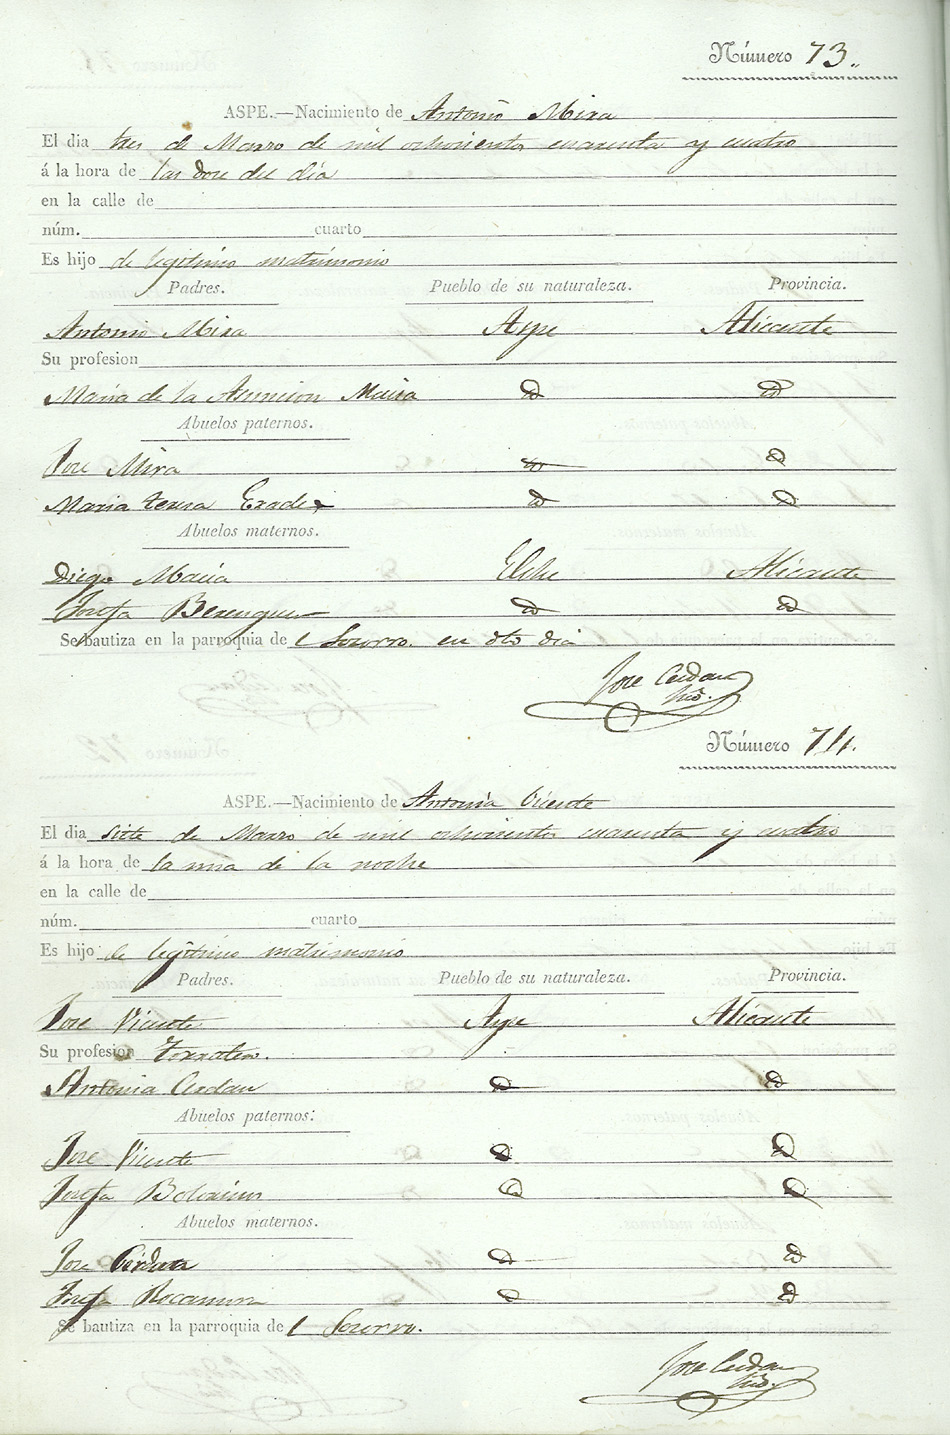 Número 73.
ASPE.—Nacimiento de Antonio Mira
El dia tres de Marzo de mil ochocientos cuarenta y cuatro
á la hora de las doce del día
en la calle de
núm. cuarto
Es hijo de legitimo matrimonio
Padres. Pueblo de su naturaleza. Provincia.
Antonio Mira Aspe Alicante
Su profesion
Maria de la Asuncion Maciá id id
Abuelos paternos.
Jose Mira id id
Maria teresa id id
Abuelos maternos.
Diego Maciá Elche Alicante
Josefa Berenguer id id
Se bautiza en la parroquia de l Socorro. en dho dia
Jose Cerdan
Número 74.
ASPE.—Nacimiento de Antonia Vicente
El dia siete de Marzo de mil ochocientos cuarenta y cuatro
á la hora de la una de la noche
en la calle de
núm. cuarto
Es hijo de legitimo matrimonio
Padres. Pueblo de su naturaleza. Provincia.
Jose Vicente Aspe Alicante
Su profesion
Antonia Cerdan id id
Abuelos paternos:
Jose Vicente id id
Josefa id id
Abuelos maternos.
Jose Cerdan id id
Josefa Rocamora id id
Se bautiza en la parroquia de l Socorro.
Jose Cerdan